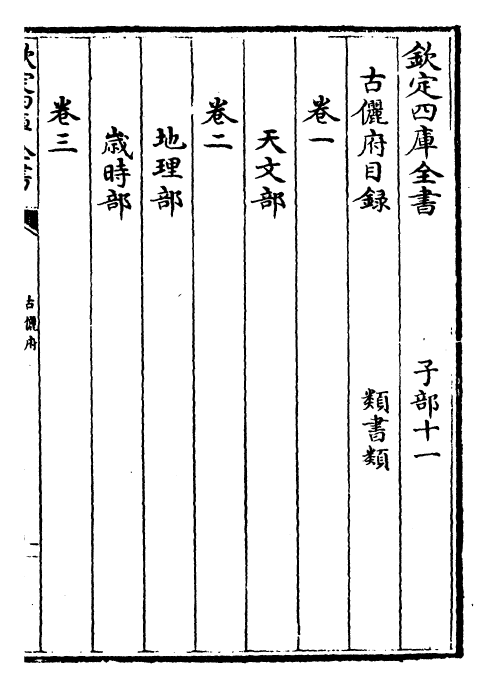 欽定四庫全書　子部十一
古儷府目録　類書類
卷一
天文部
卷二
地理部
歳時部
卷三
古儷府